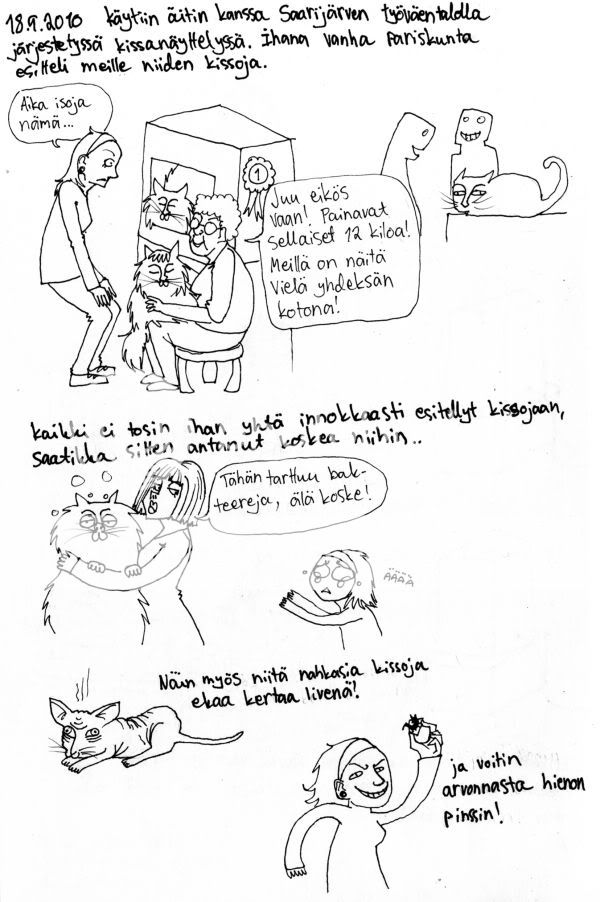 18.9.2010 käytiin äitin kanssa Saarijärven työväentalolla
järjestetyssä kissanäyttelyssä. Ihana vanha pariskunta
esitteli meille niiden kissoja.
Aika isoja
nämä...
1
Juu, eikös
vaan! Painavat
sellaiset 12 kiloa!
Meillä on näitä
vielä yhdeksän
kotona!
kaikki ei tosin ihan yhtä innokkaasti esitellyt kissojaan,
saatikka sitten antanut koskea niihin..
Tähän tarttuu bak-
teereja, älä koske!
ÄÄÄÄ
Näin myös niitä nahkasia kissoja
ekaa kertaa livenä!
ja voitin
arvonnasta hienon
pinssin!